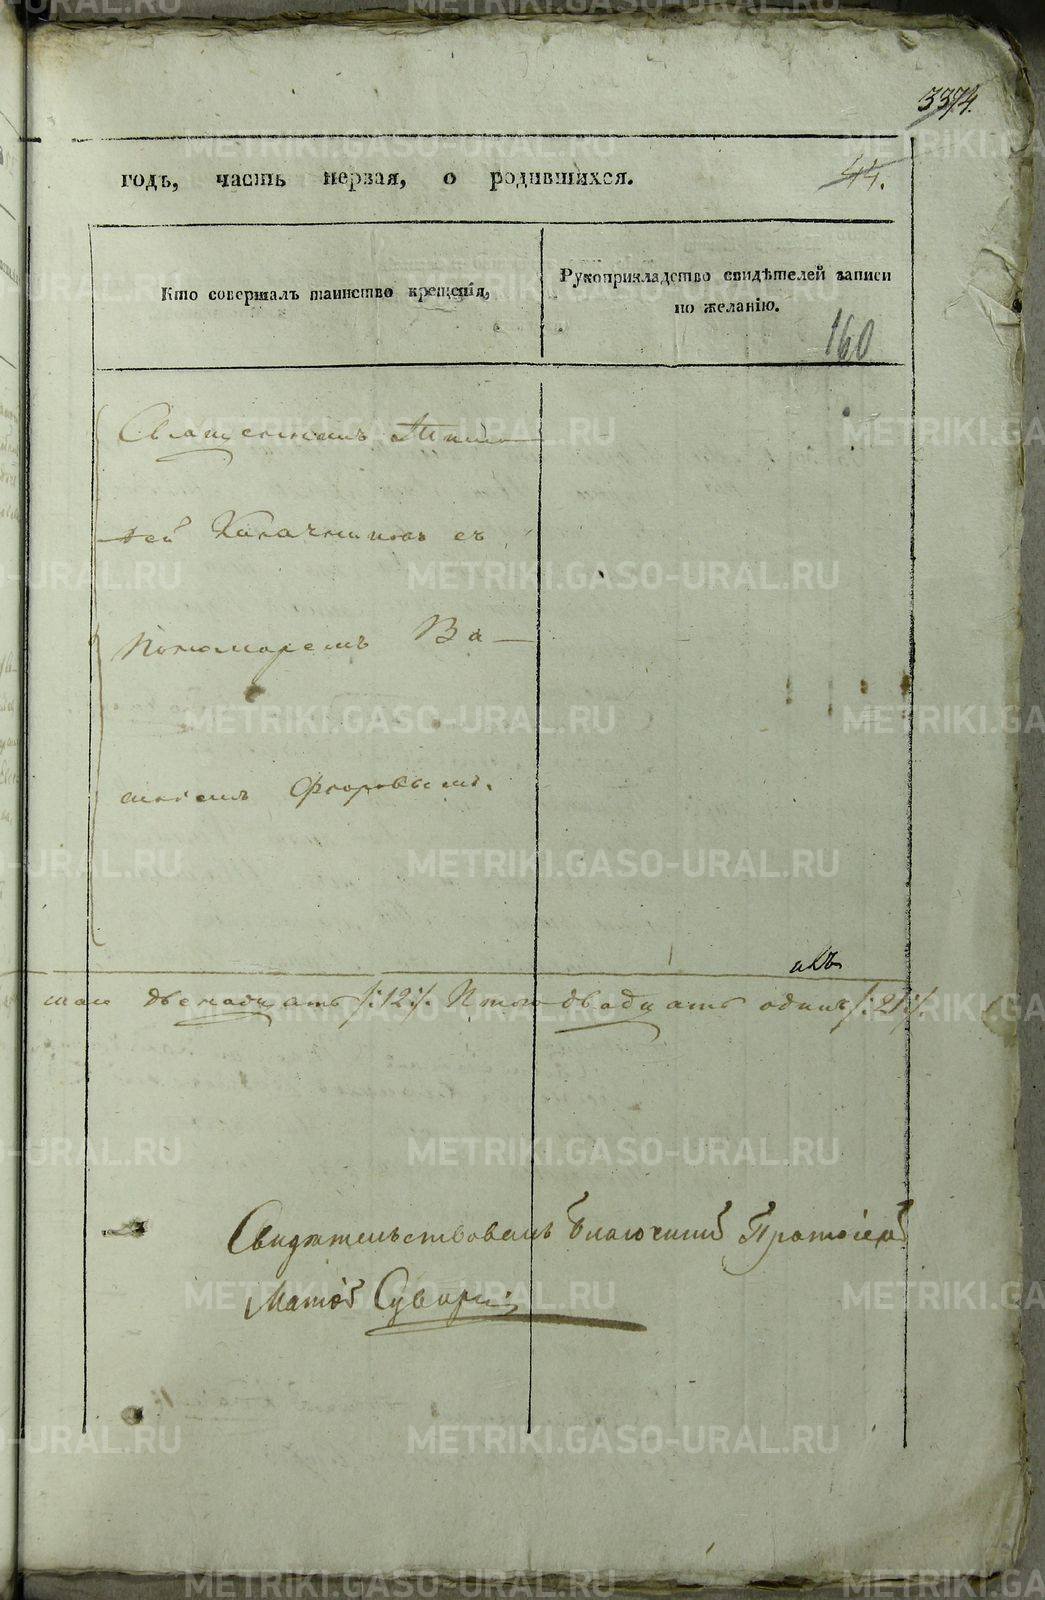 3374.
годъ, часть первая, о родившихся.
44.
Кто совершалъ таинство крещенія,
Рукоприкладство свидѣтелей записи
по желанію.
160
Священникъ Тимо-
ѳей Калачниковъ съ
Пономаремъ Ва-
Флоровымъ.
двенадцать /:12:/. Итого двадцать одинъ /:21:/.
Свидѣтельствовалъ Благочинный Протоіерей
METRIKI.GASO-URAL.RU